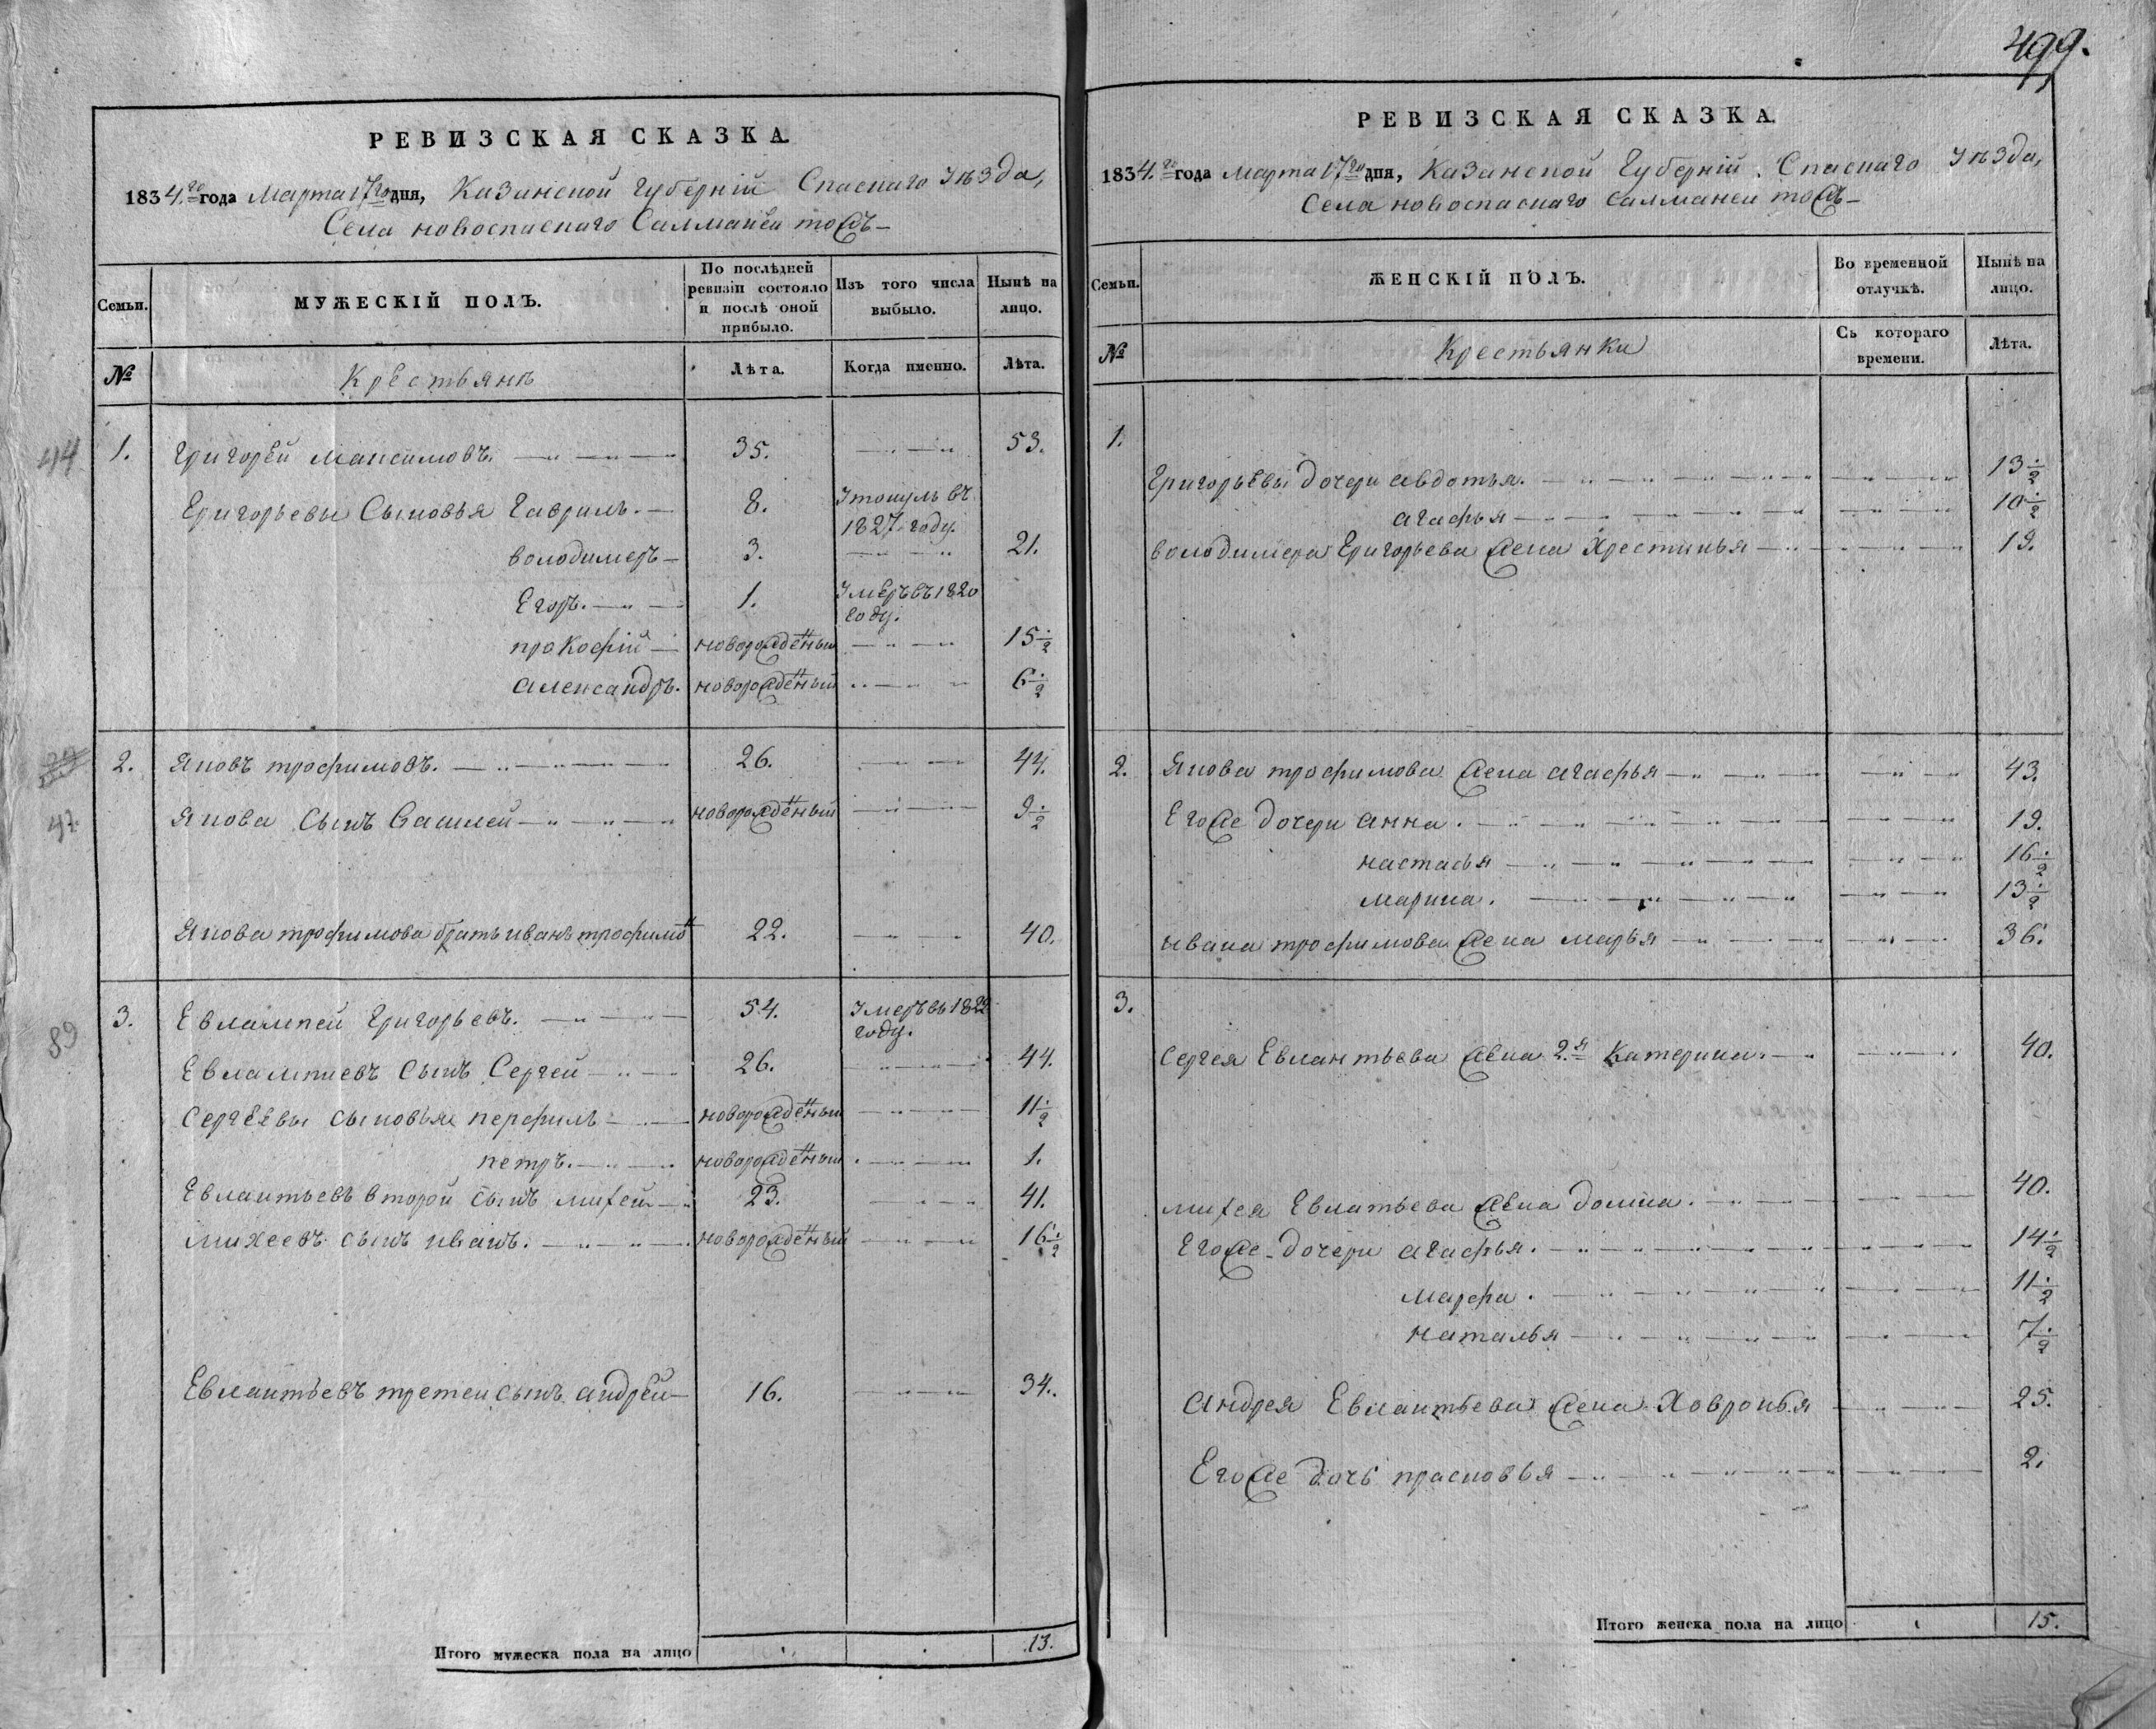 499.
РЕВИЗСКАЯ СКАЗКА.
1834.го года Марта 17го дня, Казанской Губерній Спаскаго Уѣзда,
Села новоспаскаго Салманы тожъ
Семьи. МУЖЕСКІЙ ПОЛЪ. По послѣдней ревизіи состояло и послѣ оной прибыло. Изъ того числа выбыло. Нынѣ на лицо.
№ Крестьянъ Лѣта. Когда именно. Лѣта.
44 1. Григорей Максимовъ. 35. 53.
Григорьевы Сыновья Гаврилъ. 8. Утонулъ въ
1827. году.
володимеръ 3. 21.
Егоръ. 1. Умеръ въ 1820
году.
прокофій новорожденый 15 1/2
Александръ. новорожденый 6 1/2
2. Яковъ трофимовъ. 26. 44.
47. Якова Сынъ Василей новорожденый 9 1/2
Якова трофимова братъ иванъ трофимо 22. 40.
89 3. Евлампей Григорьевъ. 54. Умеръ въ 1822
году.
Евлампиевъ Сынъ Сергей 26. 44.
Сергеевы сыновья перфилъ новорожденый 11 1/2
петръ. новорожденый 1.
Евлантьевъ второй сынъ михей 23. 41.
михеевъ сынъ иванъ. новорожденый 16 1/2
Евлантьевъ третей сынъ андрей 16. 34.
Итого мужеска пола на лицо 13.
РЕВИЗСКАЯ СКАЗКА.
1834.го года Марта 17го дня, Казанской Губерній. Спаскаго Уѣзда,
Села новоспаскаго салманы тожъ
Семьи. ЖЕНСКІЙ ПОЛЪ. Во временной отлучкѣ. Нынѣ на лицо.
№ Крестьянки Съ котораго времени. Лѣта.
1.
Григорьевы дочери авдотья. 13 1/2
агафья 10 1/2
володимера Григорьева жена Хрестинья 19.
2. Якова трофимова жена агафья 43.
Егоже дочери анна. 19.
настасья 16 1/2
марина. 13 1/2
ивана трофимова жена марья 36.
3.
Сергея Евлантьева жена 2.я Катерина. 40.
михея Евлатьева жена домна. 40.
Егоже дочери агафья. 14 1/2
марфа. 11 1/2
наталья 7 1/2
андрея Евлантьева жена Ховронья 25.
Егоже дочь прасковья 2.
Итого женска пола на лицо 15.